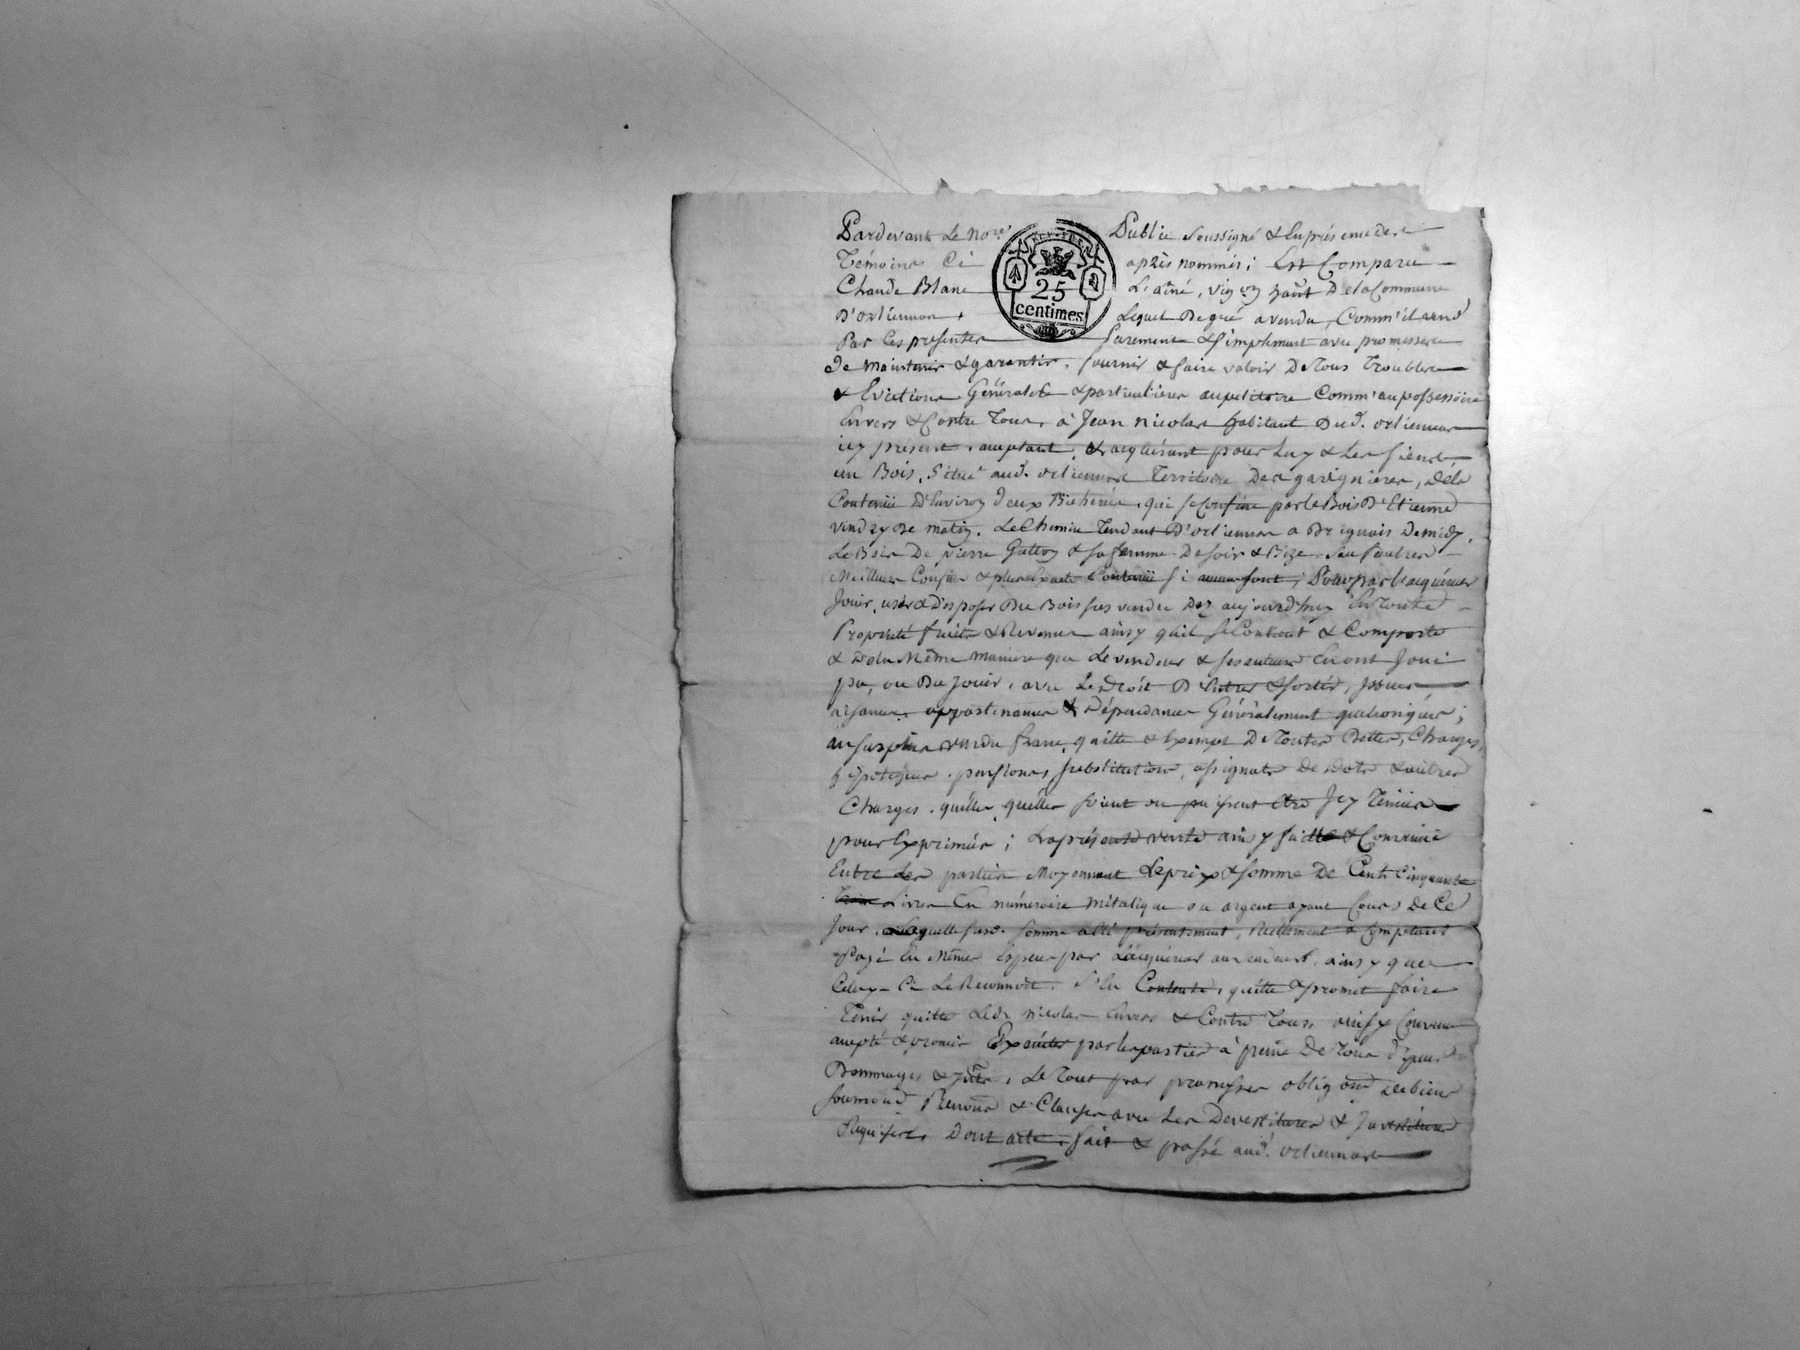 Pardevant Le No.re Public Soussigné & En présence des
Témoins Ci après nommés ; Est Comparu
25
centimes
Claude Blanc L'ainé, vig.on hañt De la Commune
D'orliennas, Lequel De gré a vendu, Comm'il vend
Par Ces presentes Purement & Simplement avec promesses
de maintenir & garantir, fournir & faire valoir De Tous Troubles
& Evictions Générales & particulieres au petitoire Comm'au possessoire
Envers & Contre Tous, à Jean Nicolas habitant Dud. orlienas
icy présent, acceptant, & acquérant pour Luy & Les Siens
un Bois, Situé aud. orlienas Territoire Des garignieres, De la
Contenüe D'Environ deux Bicherées, qui se Confine par le Bois D'Etienne
de matin, Le Chemin Tendant D'orlienas a Brignais De midy,
Le Bois De pierre & sa femme De soir & Bize, Sauf autres
Meilleurs Confins & plus Exacte Contenüe Si aucuns sont, Pour par L'acquéreur
Jouir, user & disposer Du Bois sus vendu Dez aujourd'huy En Toute
Propriété fruits & Revenus ainsy qu'il se Contient & Comporte
& De la Même maniere que Le vendeur & ses auteurs En ont Joui
pu, ou Du Jouir, avec Le Droit D'Entrer & sortir, Issues
aisances, appartenances & Dépendances Généralement quelconques ;
au surplus vendu franc, quitte & Exempt De Toutes Dettes, Charges,
hypoteques, pensions, substitutions, assignats De Dots & autres
Charges, quelles quelles soient ou puissent Etre Icy Tenües
pour Exprimées ; La présente vente ainsy faitte & Convenüe
Entre Les parties Moyennant Le prix & Somme De Cent Cinquante
Livres En numéraire Métalique ou argent ayant Cours De Ce
Jour, Laquelle susd. somme a Eté présentement, Réellement & Comptant
Payé En Mêmes Especes par L'acquéreur au vendeur, ainsy que
Celuy-Ci Le Reconnoit, S'En Contente, quitte & promet faire
Tenir quitte Led. Nicolas Envers & Contre Tous, ainsy Convenu
accepté & promis Exécuter par les parties à peine De Tous Dépens
Dommages & , Le Tout par promesses oblig.ons De biens
Clauses avec Les Devestitures & Investitures
Requises, Dont acte, fait & passé aud. orlienas